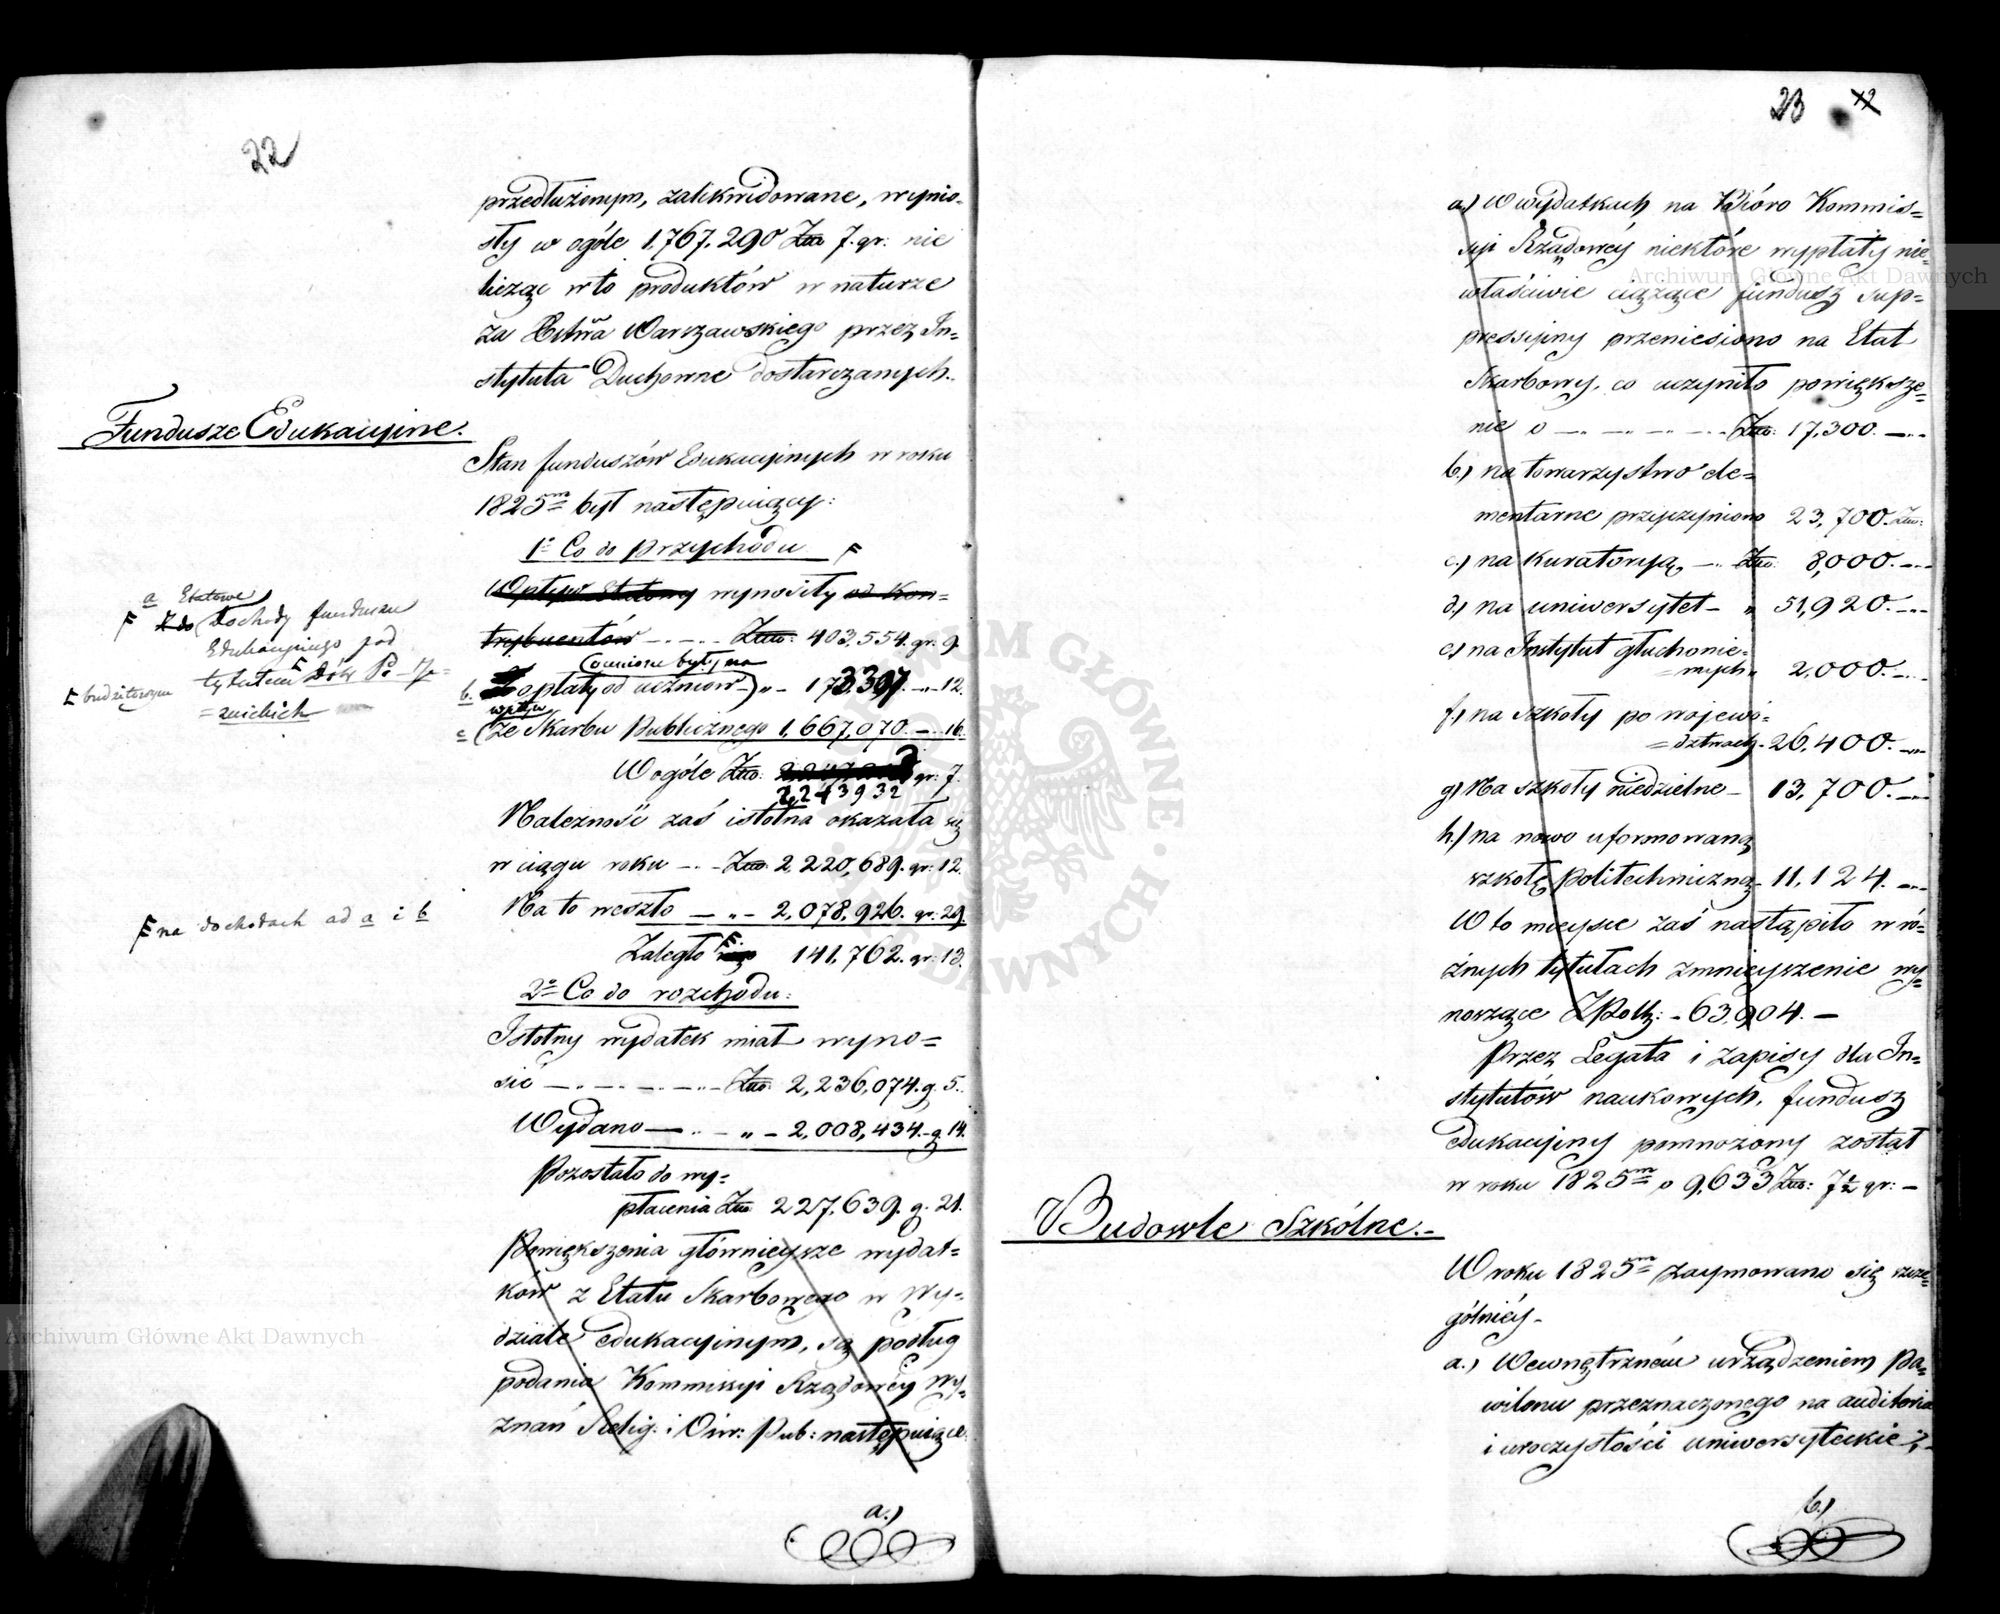 22
przedłużonym, zalikwidowane, wynio-
sły w ogóle 1,767,290 Złtt 7. gr: nie
licząc w to produktów w naturze
za Warszawskiego przez In-
stytuta Duchowne dostarczanych.
Fundusze Edukacyine.
Stan funduszów Edukacyinych w roku
1825m był następuiący:
1o Co do przychodu F
Wpływ Etatowy wynosiły od Kon-
a Etatowe
F Dochody funduszu
Edukacyinego pod
tytułem
F budżetowym
trybuentów — Złtt: 403,554. gr. 9.
Oceniono były na
b. Zapłaty od uczniów „ - 173,307. — 12.
wpływ
c (ze Skarbu Publicznego 1,667,070. — 16.
W ogóle Złtt: gr: 7.
2,243932
Należność zaś istotna okazała się
w ciągu roku — Złtt: 2,220,689. gr: 12.
Na to weszło — „ - 2,078,926. gr: 29.
F na dochodach ad a i b
Zaległo F 141,762. gr: 13.
2o Co do rozchodu:
Istotny wydatek miał wyno=
sić — Złtt: 2,236,074. g. 5.
Wydano — „ - 2,008,434. - g. 14.
Pozostało do wy-
płacenia Złtt 227,639. g. 21.
Powiększenia główniejsze wydat-
ków z Etatu Skarbowego w Wy-
dziale edukacyinym, są podług
podania Kommissyi Rządowéy Wy-
znań Relig: i Ośw: Pub: następuiące:
a.)
23 12
a.) W wydatkach na Bióro Kommis=
syi Rządowéy niektóre wypłaty nie=
właściwie ciążące fundusz sup=
pressyiny przeniesiono na Etat
Skarbowy, co uczyniło powiększe=
nie o — Złtt: 17,300. —
b.) na towarzystwo ele=
mentarne przyczyniono 23,700. Złtt:
c.) na kuratoryą, — Złtt: 8,000. —
d.) na uniwersytet — „ 51,920. —
e.) na Instytut głuchonie=
mych „ 2,000. —
f.) na szkoły po wojewó=
=dztwach - 26,400. —
g) Na szkoły niedzielne — 13,700. —
h.) na nowo uformowaną
szkołę politechniczną - 11,124. —
W to mieysce zaś nastąpiło w ró=
żnych tytułach zmnieyszenie wy=
noszące ZPolk: - 63,904. —
Przez Legata i zapisy dla In=
stytutów naukowych, fundusz
edukacyiny pomnożony został
w roku 1825m o 9,633 Złtt: 7½ gr: —
Budowle Szkólne.
W roku 1825m zaymowano się szcze=
gólniéy -
a.) Wewnętrzném urządzeniem Pa=
wilonu przeznaczonego na auditoria
i uroczystości uniwersyteckie;
b.)
Archiwum Główne Akt Dawnych
Archiwum Główne Akt Dawnych
ARCHIWUM GŁÓWNE AKT DAWNYCH